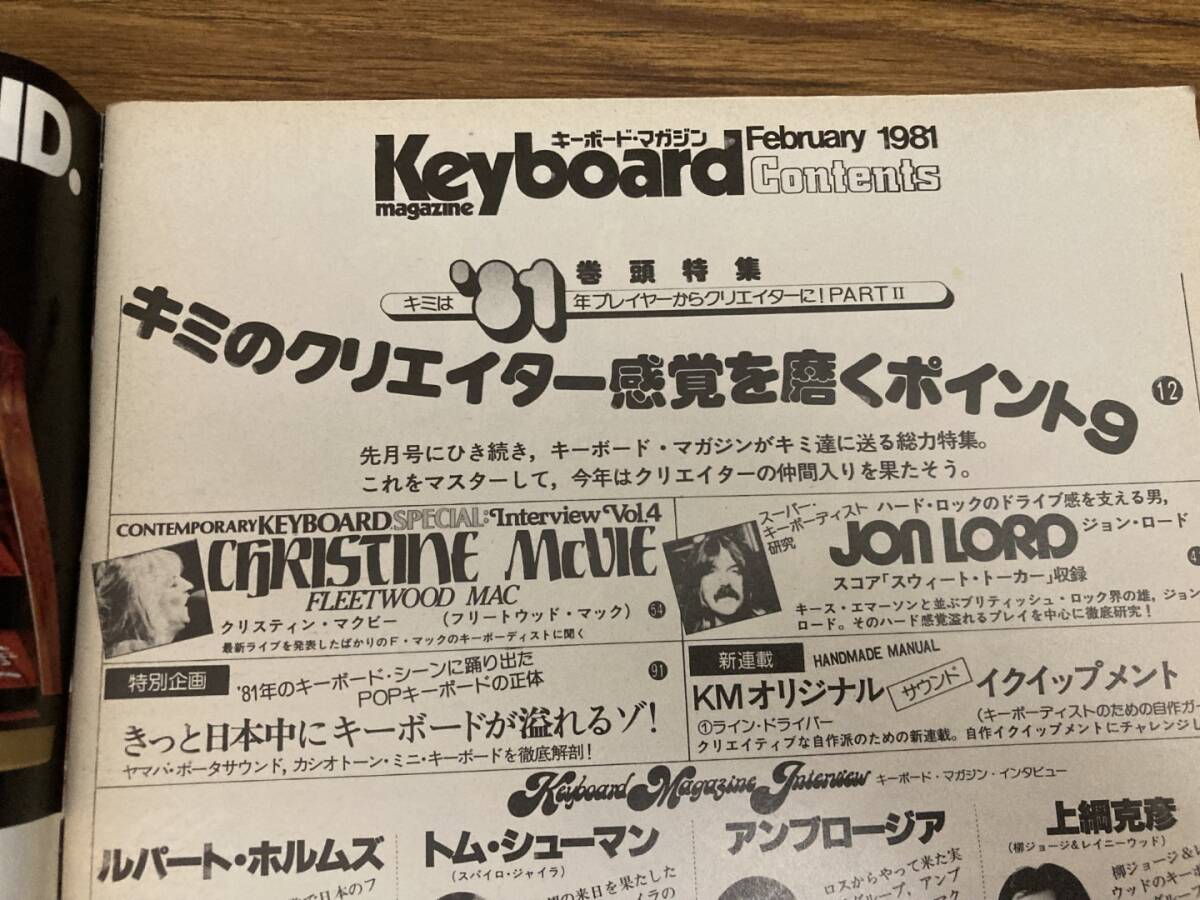 ND.
キーボード・マガジン
Keyboard
magazine
February 1981
Contents
巻頭特集
キミは'81年プレイヤーからクリエイターに!PART II
キミのクリエイター感覚を磨くポイント9
12
先月号にひき続き,キーボード・マガジンがキミ達に送る総力特集。
これをマスターして,今年はクリエイターの仲間入りを果たそう。
CONTEMPORARY KEYBOARD SPECIAL: Interview Vol.4
CHRISTINE McVIE
FLEETWOOD MAC
クリスティン・マクビー (フリートウッド・マック)
54
最新ライブを発表したばかりのF・マックのキーボーディストに聞く
スーパー・
キーボーディスト
研究
ハード・ロックのドライブ感を支える男,
JON LORD ジョン・ロード
スコア「スウィート・トーカー」収録
キース・エマーソンと並ぶブリティッシュ・ロック界の雄,ジョン
ロード。そのハード感覚溢れるプレイを中心に徹底研究!
特別企画
'81年のキーボード・シーンに踊り出た
POPキーボードの正体
91
きっと日本中にキーボードが溢れるゾ!
ヤマハ・ポータサウンド,カシオトーン・ミニ・キーボードを徹底解剖!
新連載
HANDMADE MANUAL
KMオリジナル サウンド イクイップメント
①ライン・ドライバー
(キーボーディストのための自作ガ
クリエイティブな自作派のための新連載。自作イクイップメントにチャレンジし
Keyboard Magazine Interview キーボード・マガジン・インタビュー
ルパート・ホルムズ
で日本のフ
トム・シューマン
(スパイロ・ジャイラ)
の来日を果たした
イラの
アンブロージア
ロスからやって来た実
グループ,アンブ
マク
上綱克彦
(柳ジョージ&レイニーウッド)
柳ジョージ&レ
ウッドのキーボ